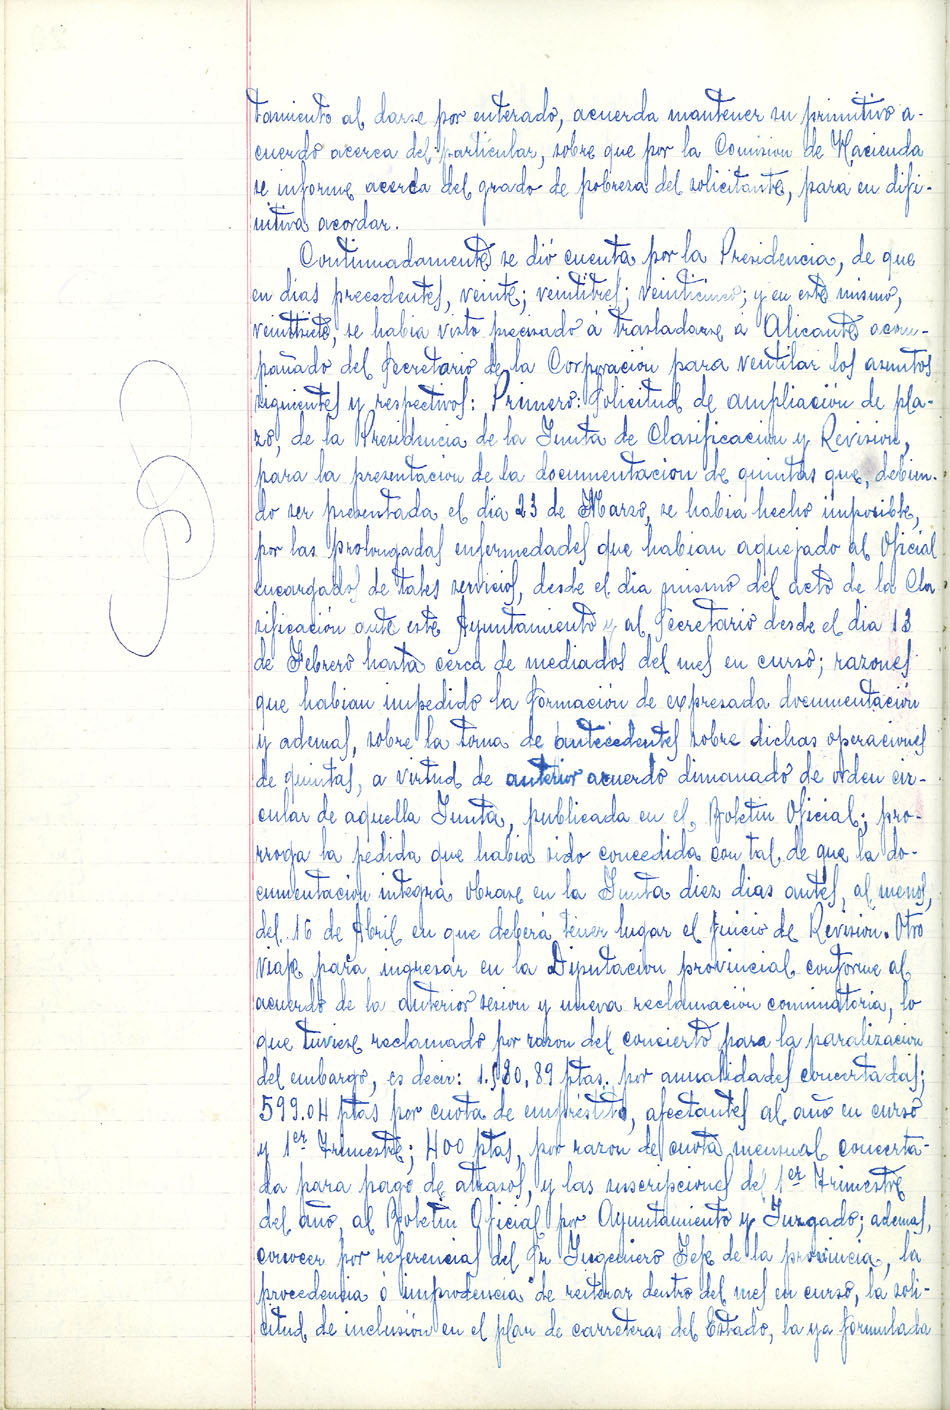 tamiento al darse por enterado, acuerda mantener su primitivo a-
cuerdo acerca del particular, sobre que por la Comision de Hacienda
se informe acerca del grado de pobreza del solicitante, para en difi-
nitiva acordar.
Continuadamente se dió cuenta por la Presidencia, de que
en dias precedentes, veinte; veintitres; veinticinco; y en este mismo,
veintisiete, se habia visto precisado á trasladarse á Alicante acom-
pañado del Secretario de la Corporación para ventilar los asuntos
siguientes y respectivos: Primero: Solicitud de ampliación de pla-
zo, de la Presidencia de la Junta de Clasificacion y Revision,
para la presentacion de la documentacion de quintas que, debien-
do ser presentada el dia 23 de Marzo, se habia hecho imposible,
por las prolongadas enfermedades que habian aquejado al Oficial
encargado de tales servicios, desde el dia mismo del acto de la Cla
sificación ante este Ayuntamiento y al Secretario desde el dia 13
de Febrero hasta cerca de mediados del mes en curso; razones
que habian impedido la formación de expresada documentación
y ademas, sobre la toma de antecedentes sobre dichas operaciones
de quintas, a virtud de anterior acuerdo dimanado de orden cir-
cular de aquella Junta, publicada en el Boletin Oficial; pro-
rroga la pedida que habia sido concedida con tal de que la do-
cumentacion integra obrase en la Junta diez dias antes, al menos,
del 16 de Abril en que deberá tener lugar el juicio de Revision. Otro
viaje para ingresar en la Diputacion provincial conforme al
acuerdo de la anterior sesion y nueva reclamación conminatoria, lo
que tuviese reclamado por razon del concierto para la paralizacion
del embargo, es decir: 80,89 ptas. por anualidades concertadas;
599.04 ptas por cuota de emprestito, afectantes al año en curso
y 1er Trimestre; 400 ptas, por razon de cuota mensual concerta-
da para pago de atrasos, y las suscripciones del 1er Trimestre
del año, al Boletin Oficial por Ayuntamiento y Juzgado; ademas,
conocer por referencias del Sr Ingeniero Jefe de la provincia, la
procedencia ó improdencia de reiterar dentro del mes en curso, la soli-
citud de inclusión en el plan de carreteras del Estado, la ya formulada